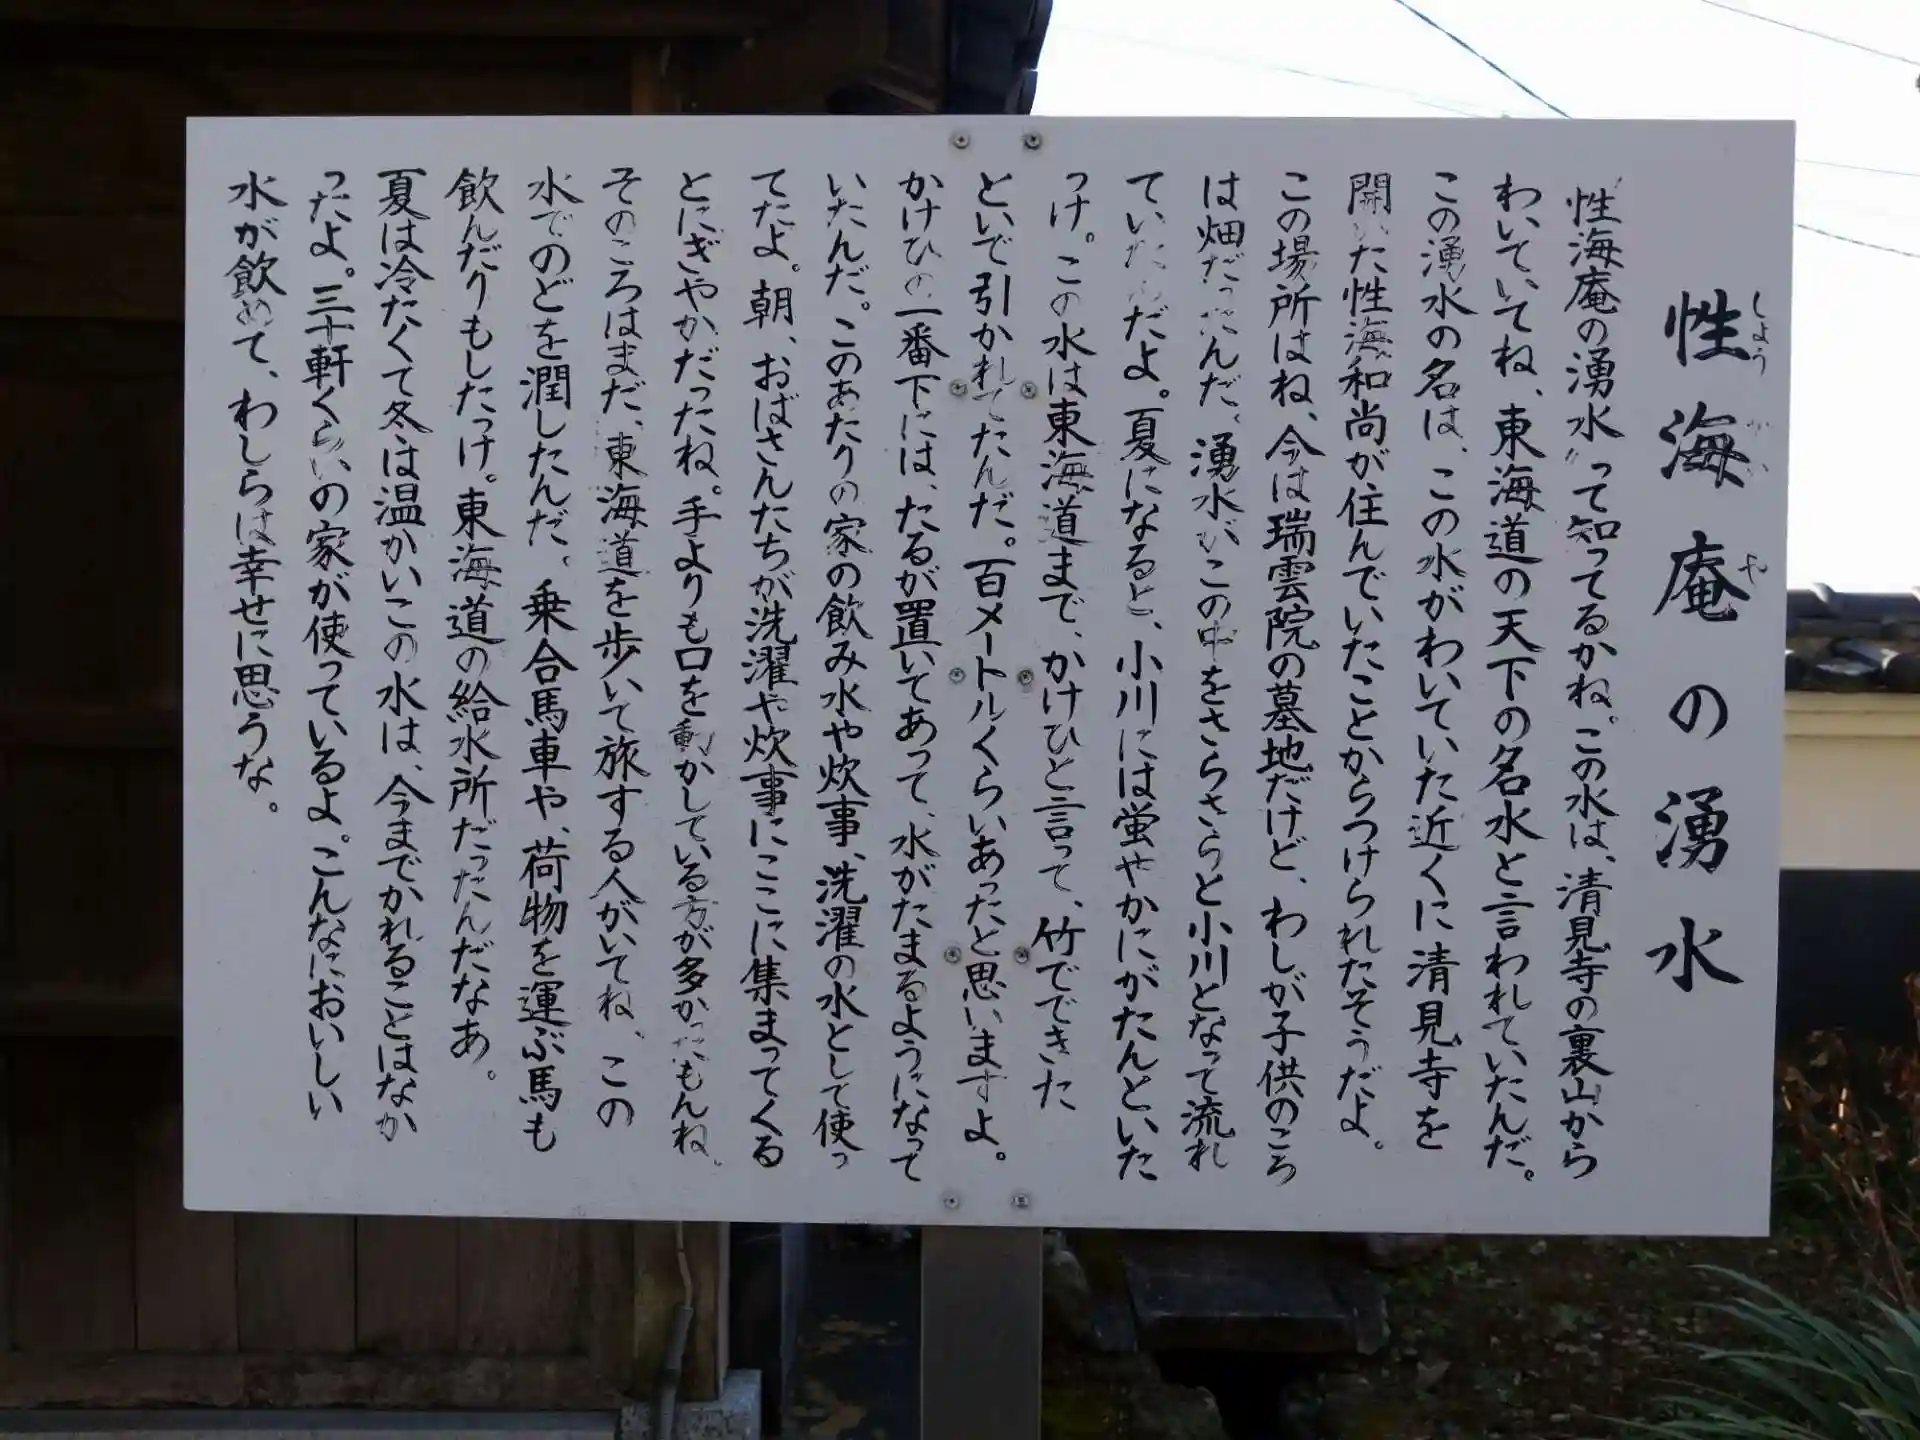 性海庵の湧水
しょう かい や
〝性海庵の湧水〟って知ってるかね。この水は、清見寺の裏山から
わいていてね、東海道の天下の名水と言われていたんだ。
この湧水の名は、この水がわいていた近くに清見寺を
開いた性海和尚が住んでいたことからつけられたそうだよ。
この場所はね、今は瑞雲院の墓地だけど、わしが子供のころ
は畑だったんだ。湧水がこの中をさらさらと小川となって流れ
ていたんだよ。夏になると、小川には蛍やかにがたんといた
っけ。この水は東海道まで、かけひと言って、竹でできた
といで引かれてたんだ。百メートルくらいあったと思いますよ。
かけひの一番下には、たるが置いてあって、水がたまるようになって
いたんだ。このあたりの家の飲み水や炊事、洗濯の水として使っ
てたよ。朝、おばさんたちが洗濯や炊事にここに集まってくる
とにぎやかだったね。手よりも口を動かしている方が多かったもんね。
そのころはまだ、東海道を歩いて旅する人がいてね、この
水でのどを潤したんだ。乗合馬車や、荷物を運ぶ馬も
飲んだりもしたっけ。東海道の給水所だったんだなあ。
夏は冷たくて冬は温かいこの水は、今までかれることはなか
ったよ。三十軒くらいの家が使っているよ。こんなにおいしい
水が飲めて、わしらは幸せに思うな。